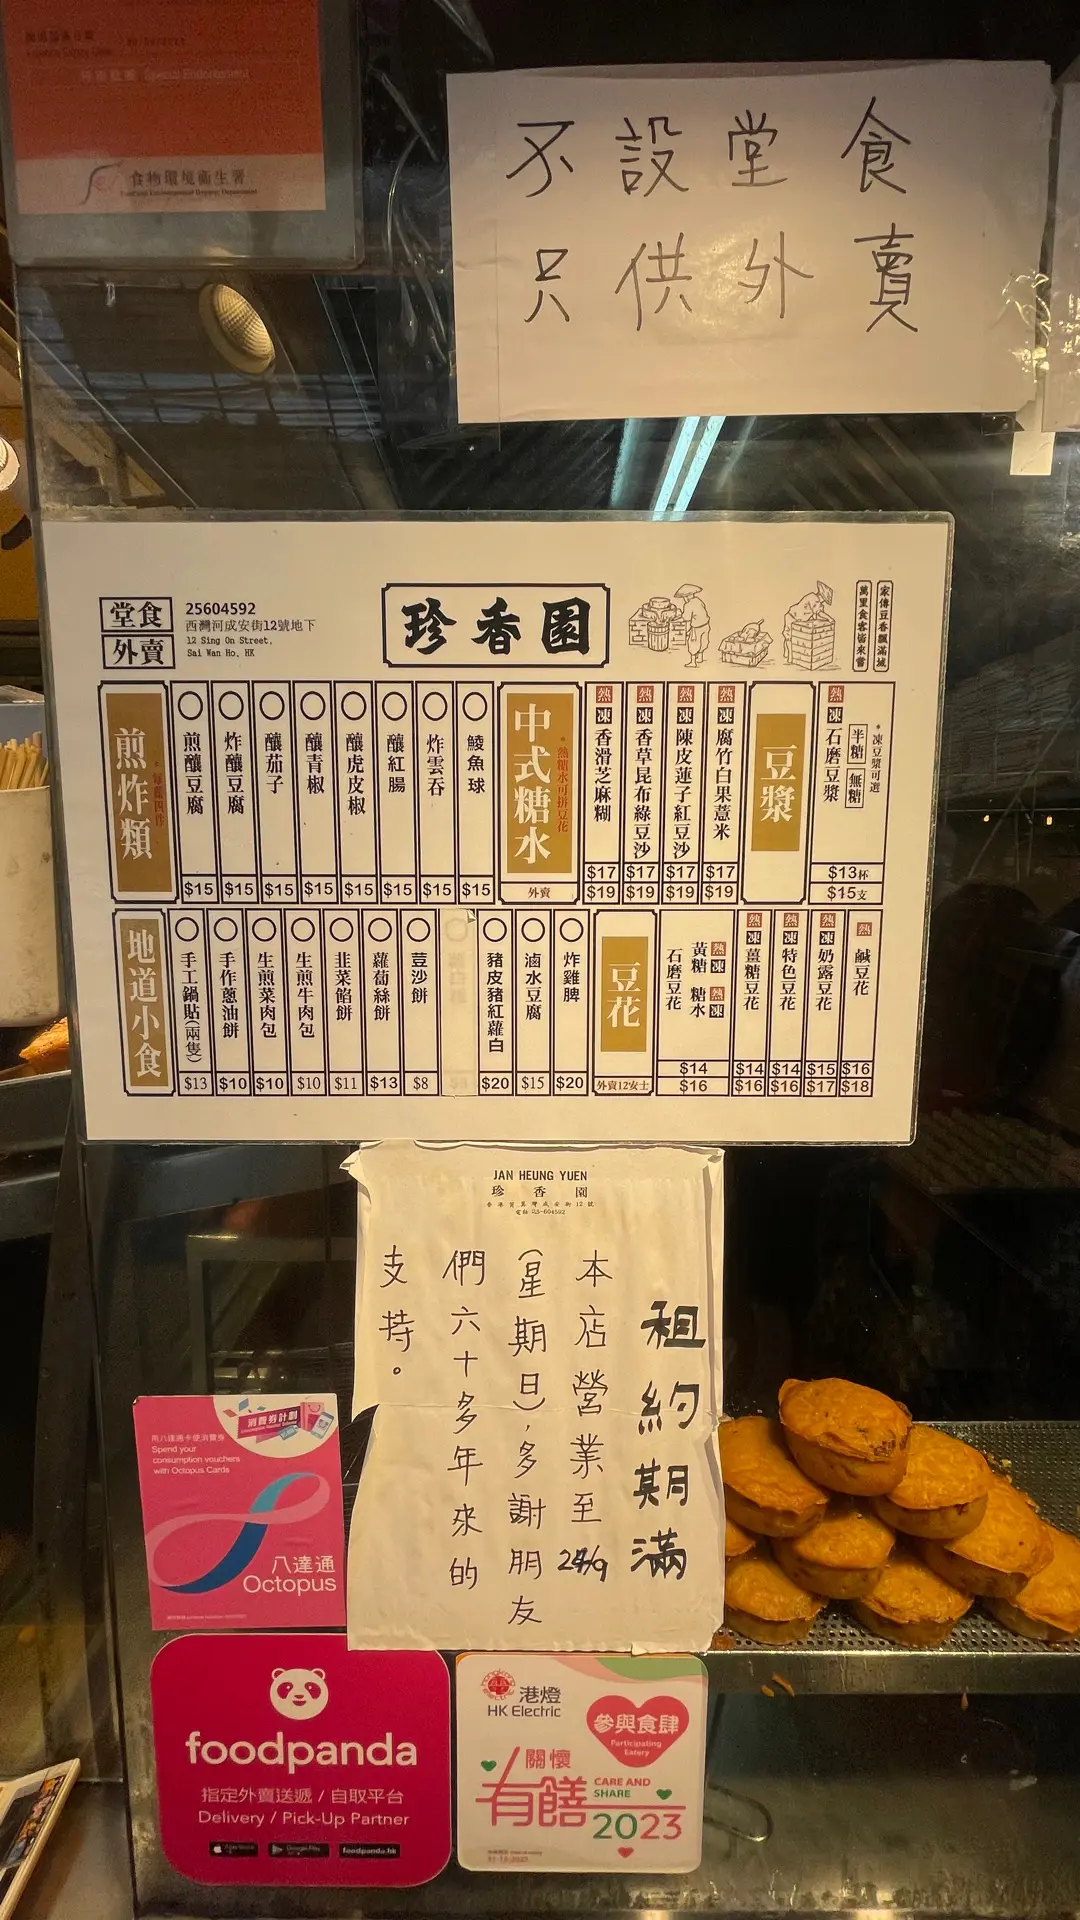 食物環境衞生署
不設堂食
只供外賣
堂食
外賣
25604592
西灣河成安街12號地下
12 Sing On Street,
Sai Wan Ho, HK
珍香園
家傳豆香飄滿城
萬里食客皆來嘗
煎炸類
煎釀豆腐 $15
炸釀豆腐 $15
釀茄子 $15
釀青椒 $15
釀虎皮椒 $15
釀紅腸 $15
炸雲吞 $15
鯪魚球 $15
中式糖水
*熱糖水可拼豆花
外賣
熱 凍 香滑芝麻糊 $17 $19
熱 凍 香草昆布綠豆沙 $17 $19
熱 凍 陳皮蓮子紅豆沙 $17 $19
熱 凍 腐竹白果薏米 $17 $19
豆漿
熱 凍 石磨豆漿
*凍豆漿可選
半糖 無糖
$13杯
$15支
地道小食
手工鍋貼(兩隻) $13
手作蔥油餅 $10
生煎菜肉包 $10
生煎牛肉包 $10
韭菜餡餅 $11
蘿蔔絲餅 $13
荳沙餅 $8
豬皮豬紅蘿白 $20
滷水豆腐 $15
炸雞脾 $20
豆花
外賣12安士
石磨豆花 黃糖 熱 凍 糖水 熱 凍 $14 $16
熱 凍 薑糖豆花 $14 $16
熱 凍 特色豆花 $14 $16
熱 凍 奶露豆花 $15 $17
熱 鹹豆花 $16 $18
JAN HEUNG YUEN
珍香園
租約期滿
本店營業至24/9
(星期日),多謝朋友
們六十多年來的
支持。
消費券計劃
用八達通卡使消費券
Spend your
consumption vouchers
with Octopus Cards
八達通
Octopus
foodpanda
指定外賣送遞 / 自取平台
Delivery / Pick-Up Partner
foodpanda.hk
港燈
HK Electric
參與食肆
Participating
Eatery
關懷
有饍
CARE AND
SHARE
2023